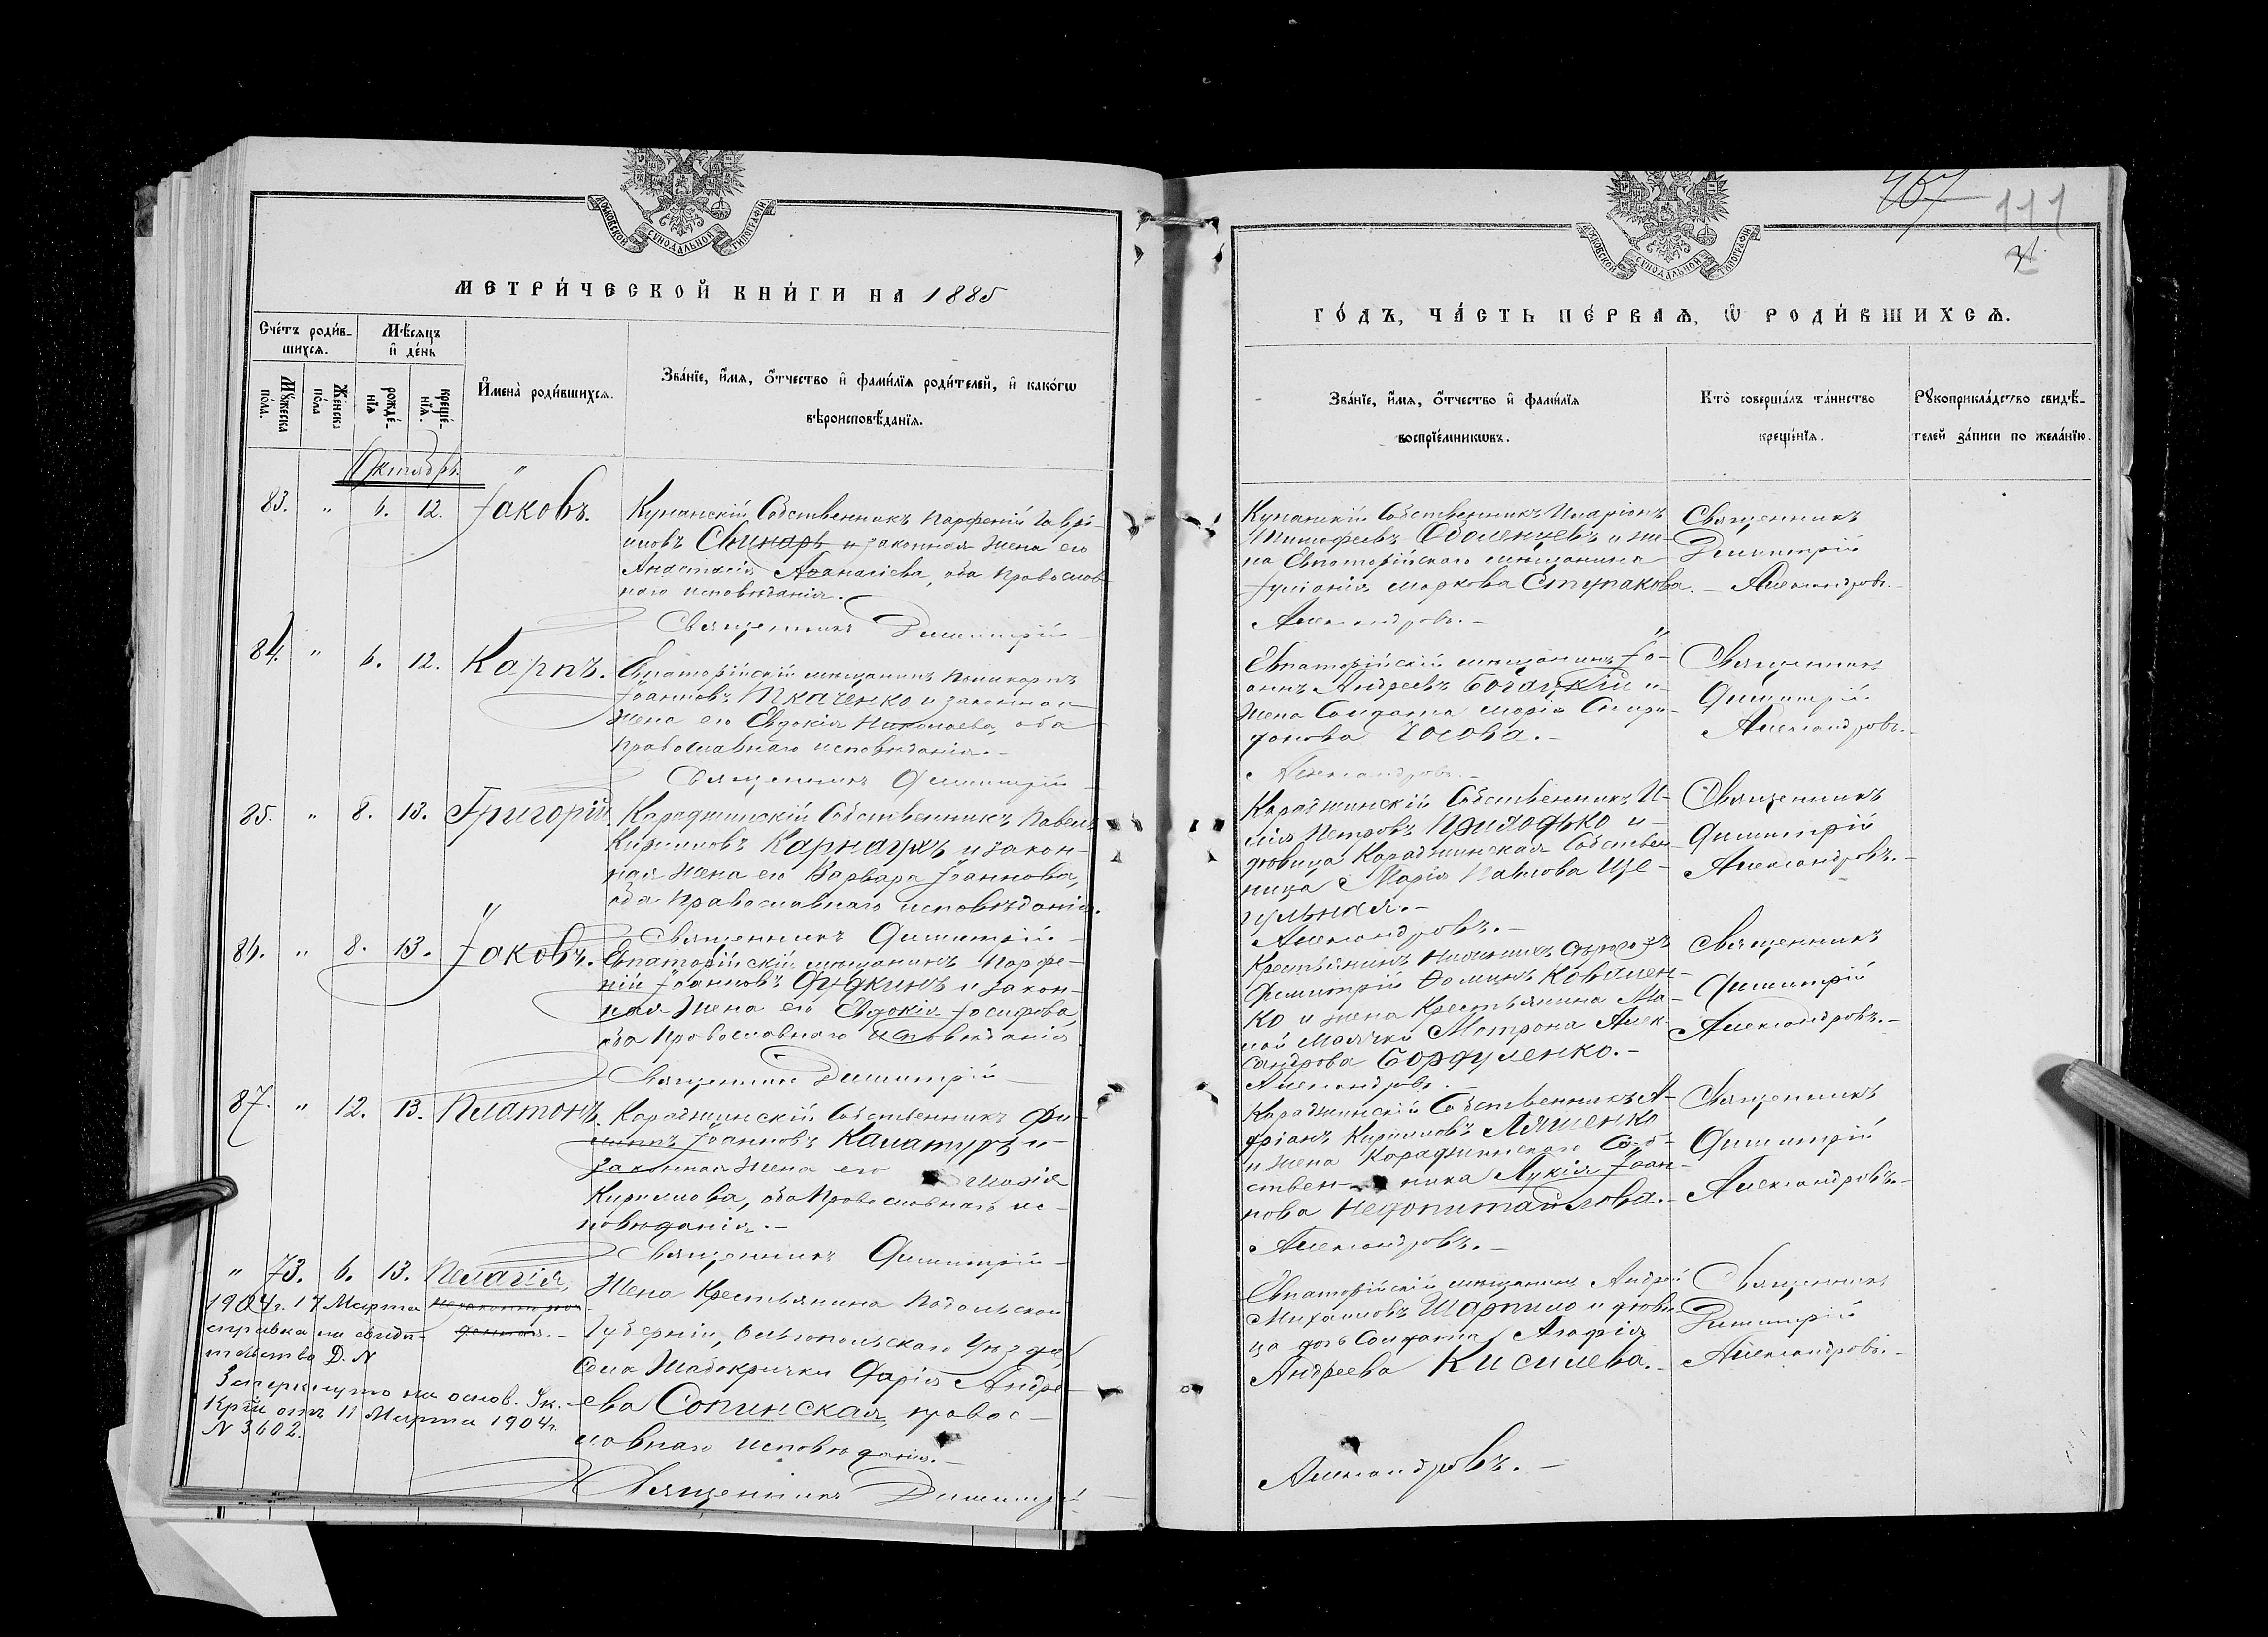 МОСКОВСКОЙ СУНОДАЛЬНОЙ ТИПОГРАФІИ
МЕТРИ́ЧЕСКОЙ КНИ́ГИ НА 1885
Сче́тъ роди́в-
шихсѧ.
Мѣ́сѧцъ
и҆ де́нь
Мꙋ́жеска
по́ла.
Же́нска
по́ла
рожде́-
нїѧ
креще́-
нїѧ.
И҆мена̀ роди́вшихсѧ.
Зва́нїе, и҆́мѧ, ѻ҆́тчество и҆ фами́лїѧ роди́телей, и҆ како́гѡ
вѣроисповѣ́данїѧ.
Октябрь.
83. " 6. 12. Іаковъ.
Кунанскій Собственникъ Парфеній Гаврі-
иловъ Свинарь и законная жена его
Анастасія Аѳанасіева, оба Православ-
наго исповѣданія.
Священникъ Димитрій
84. " 6. 12. Карпъ.
Евпаторійскій мѣщанинъ Поликарпъ
Іоанновъ Ткаченко и законная
жена его Евдокія Николаева, оба
Православнаго исповѣданія.-
Священникъ Димитрій
85. " 8. 13. Григорій.
Караджинскій Собственникъ Павелъ
Кирилловъ Карнаухъ и закон-
ная жена его Варвара Іоаннова,
оба Православнаго исповѣданія.
Священникъ Димитрій
86. " 8. 13. Іаковъ.
Евпаторійскій мѣщанинъ Парфе-
ній Іоанновъ Дудкинъ и закон-
ная жена его Евдокія Іосифова,
оба Православнаго исповѣданія
Священникъ Димитрій
87. " 12. 13. Платонъ.
Караджинскій Собственникъ Фи-
липпъ Іоанновъ Каматуръ и
законная жена его
Кириллова, оба Православнаго ис-
повѣданія.-
Священникъ Димитрій
" 73. 6. 13. Пелагія,
незаконнорож
денная.-
Жена Крестьянина Подольской
Губерніи, Ольгопольскаго Уѣзда
Села Шабокрички Дарія Андре-
ева Сопинская, правос-
лавнаго исповѣданія.-
Священникъ Димитрій
1904 г. 17 Марта
справка на свидѣ-
тельство Д. N
Зачеркнуто на основ. Ук.
Кр... отъ 11 Марта 1904 г.
N 3602.
467 111
МОСКОВСКОЙ СУНОДАЛЬНОЙ ТИПОГРАФІИ
ГО́ДЪ, ЧА́СТЬ ПЕ́РВАѦ, Ѡ҆ РОДИ́ВШИХСѦ.
Зва́нїе, и҆́мѧ, ѻ҆́тчество и҆ фами́лїѧ
воспрїе́мникѡвъ.
Кто̀ соверша́лъ та́инство
креще́нїѧ.
Рꙋкоприкла́дство свидѣ́-
телей за́писи по жела́нїю.
Кунанскій Собственникъ Иларіонъ
Тимофеевъ Оболенцевъ и же-
на Евпаторійскаго мѣщанина
Іуліанія Маркова Ступакова.-
Александровъ.-
Священникъ
Димитрій
Александровъ.-
Евпаторійскій мѣщанинъ Іо-
аннъ Андреевъ Богацкій и
жена Солдата Марія Спири-
донова Чосова.-
Александровъ.-
Священникъ
Димитрій
Александровъ.-
Караджинскій Собственникъ И-
лія Петровъ Приходько и
дѣвица Караджинская Собствен-
ница Марія Павлова Ще-
гульная.-
Александровъ.-
Священникъ
Димитрій
Александровъ.-
Крестьянинъ Нижнихъ Сѣрогозъ
Димитрій Ѳоминъ Ковален-
ко и жена Крестьянина Ма-
лой Маячки Матрона Алек-
сандрова Бордуленко.-
Александровъ.-
Священникъ
Димитрій
Александровъ.-
Караджинскій Собственникъ А-
дріанъ Кирилловъ Ляшенко
и жена Караджинскаго Соб-
ствен- ника Лукія Іоан-
нова Недопитайлова.-
Александровъ.-
Священникъ
Димитрій
Александровъ.-
Евпаторійскій мѣщанинъ Андрей
Михаиловъ Шарпило и дѣви-
ца дочь Солдата Агафія
Андреева Кисилева.-
Александровъ.-
Священникъ
Димитрій
Александровъ.-